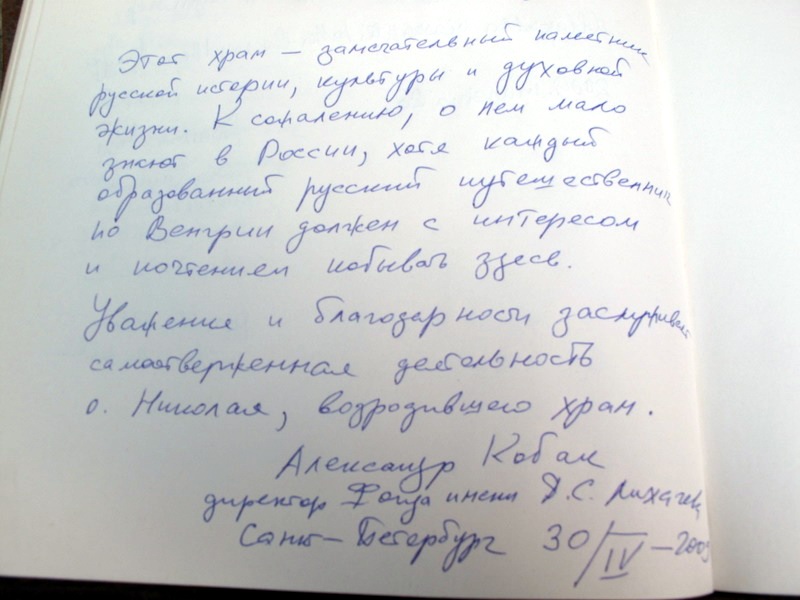 Этот храм — замечательный памятник
русской истории, культуры и духовной
жизни. К сожалению, о нем мало
знают в России, хотя каждый
образованный русский путешественник
по Венгрии должен с интересом
и почтением побывать здесь.
Уважение и благодарность заслуживает
самоотверженная деятельность
о. Николая, возродившего храм.
Александр Кобак
директор Фонда имени Д.С. Лихачева
Санкт-Петербург 30/IV — 2009